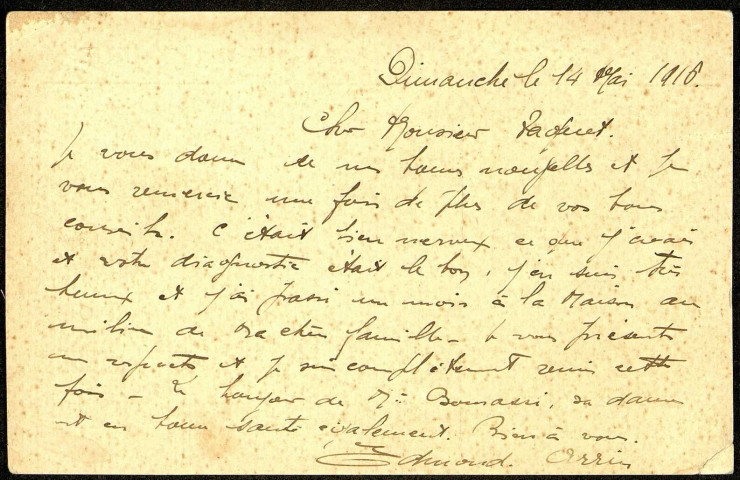 Dimanche le 14 Mai 1916.
Cher Monsieur Paquet.
Je vous donne de mes bonnes nouvelles et je
vous remercie une fois de plus de vos bons
conseils. C'était bien nerveux ce que j'avais
et votre diagnostic était le bon, j'en suis très
heureux et j'ai passé un mois à la Maison au
milieu de ma chère famille - Je vous présente
mes respects et je suis complètement remis cette
fois - Le de Mr sa dame
est en bonne santé également. Bien à vous.
Edmond